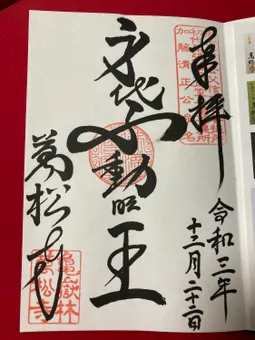 奉拝
令和三年
十二月二十二日
加藤清正公
身代不動明王
萬松寺
龜嶽林
萬松寺